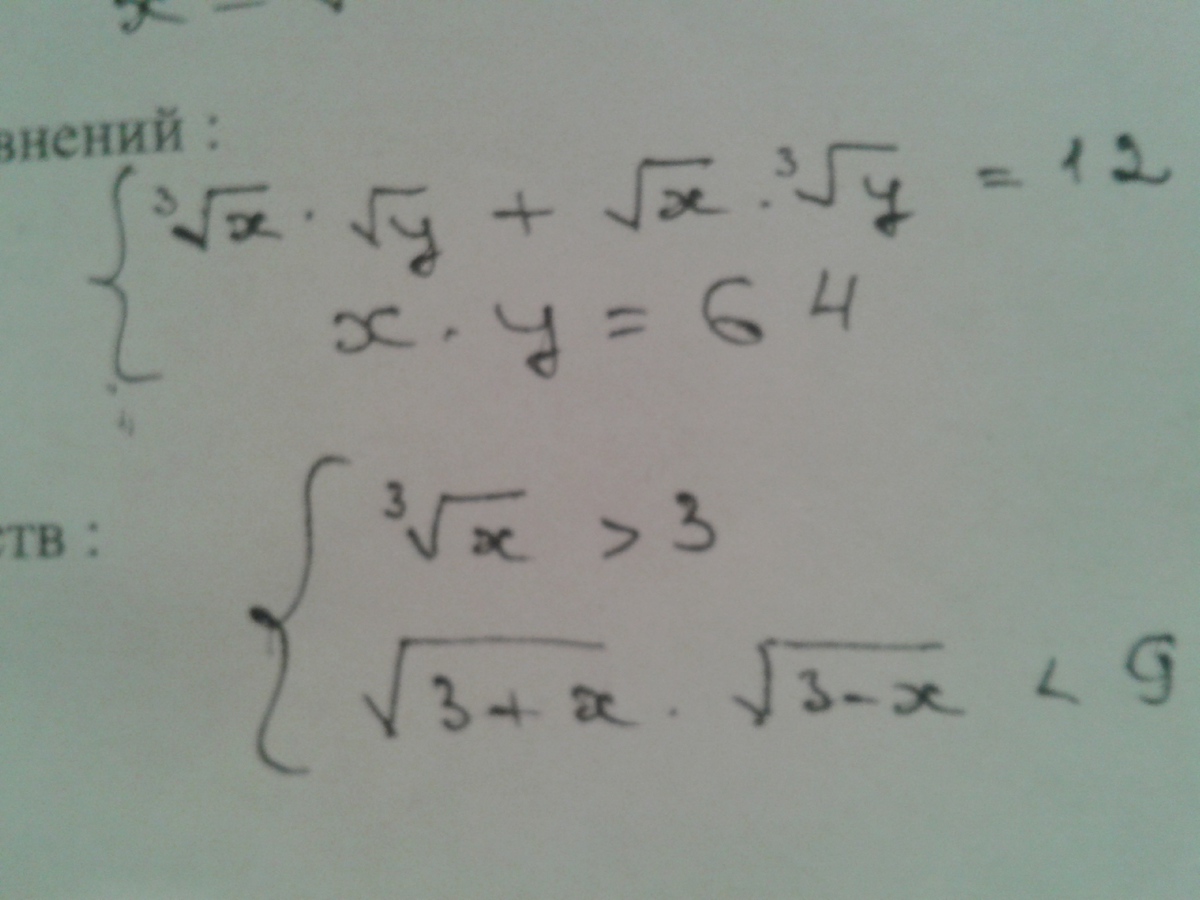 внений :
∛x · √y + √x · ∛y = 12
x · y = 64
ств :
∛x > 3
√(3+x) · √(3-x) < 9